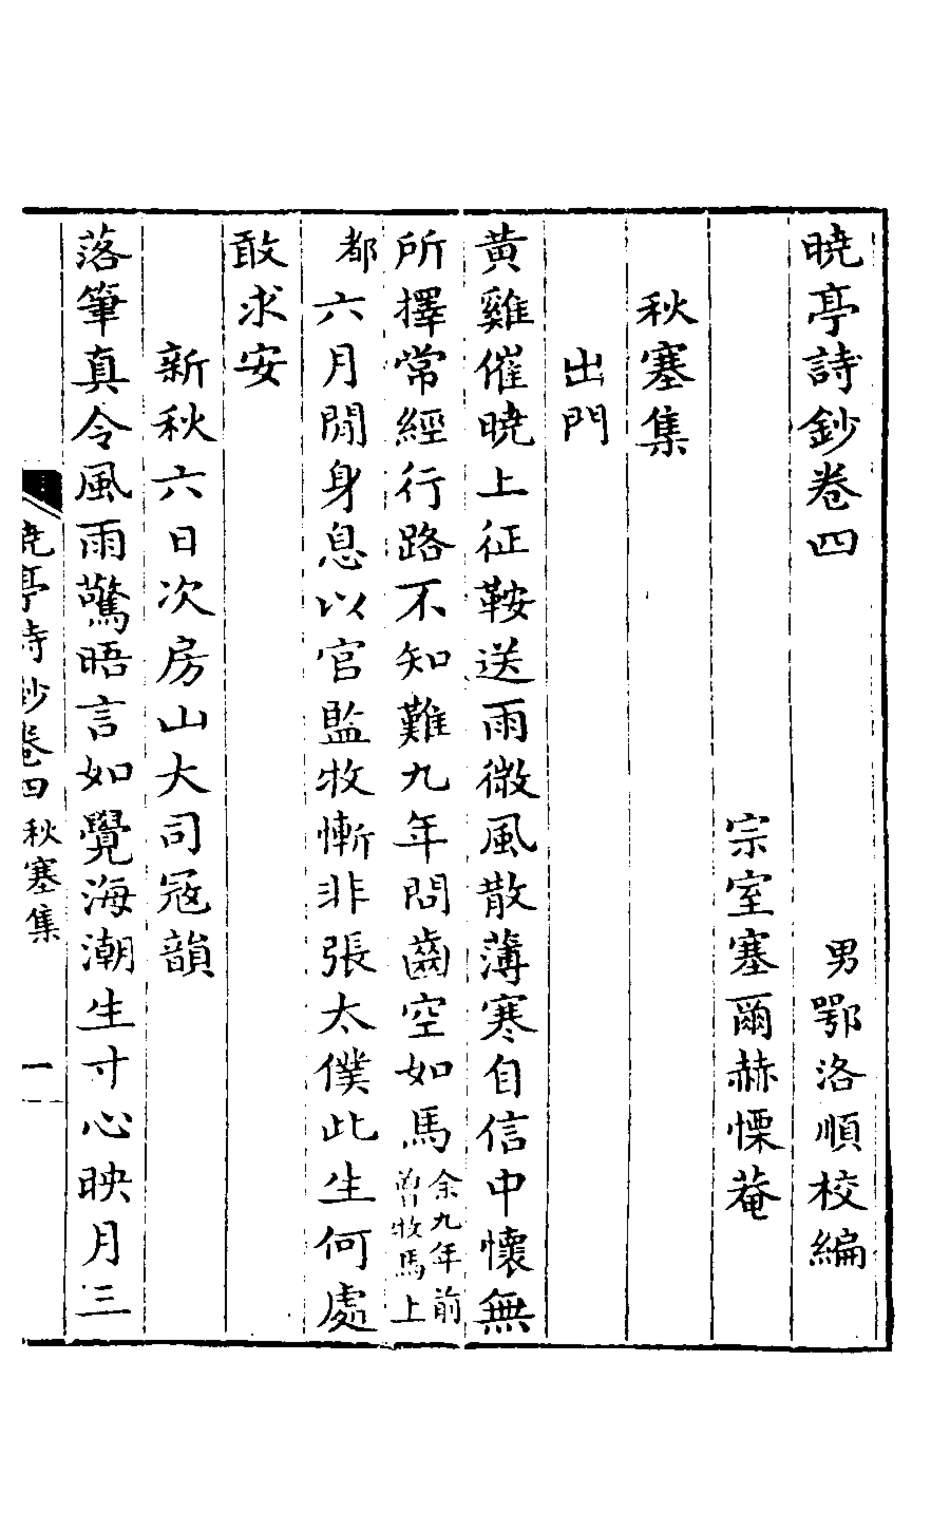 曉亭詩鈔卷四　男鄂洛順校編
宗室塞爾赫慄菴
秋塞集
出門
黃雞催曉上征鞍送雨微風散薄寒自信中懷無
所擇常經行路不知難九年問齒空如馬余九年前曾牧馬上
都六月閒身息以官監牧慚非張太僕此生何處
敢求安
新秋六日次房山大司冦韻
落筆真令風雨驚晤言如覺海潮生寸心映月三
曉亭詩鈔卷四　秋塞集　一